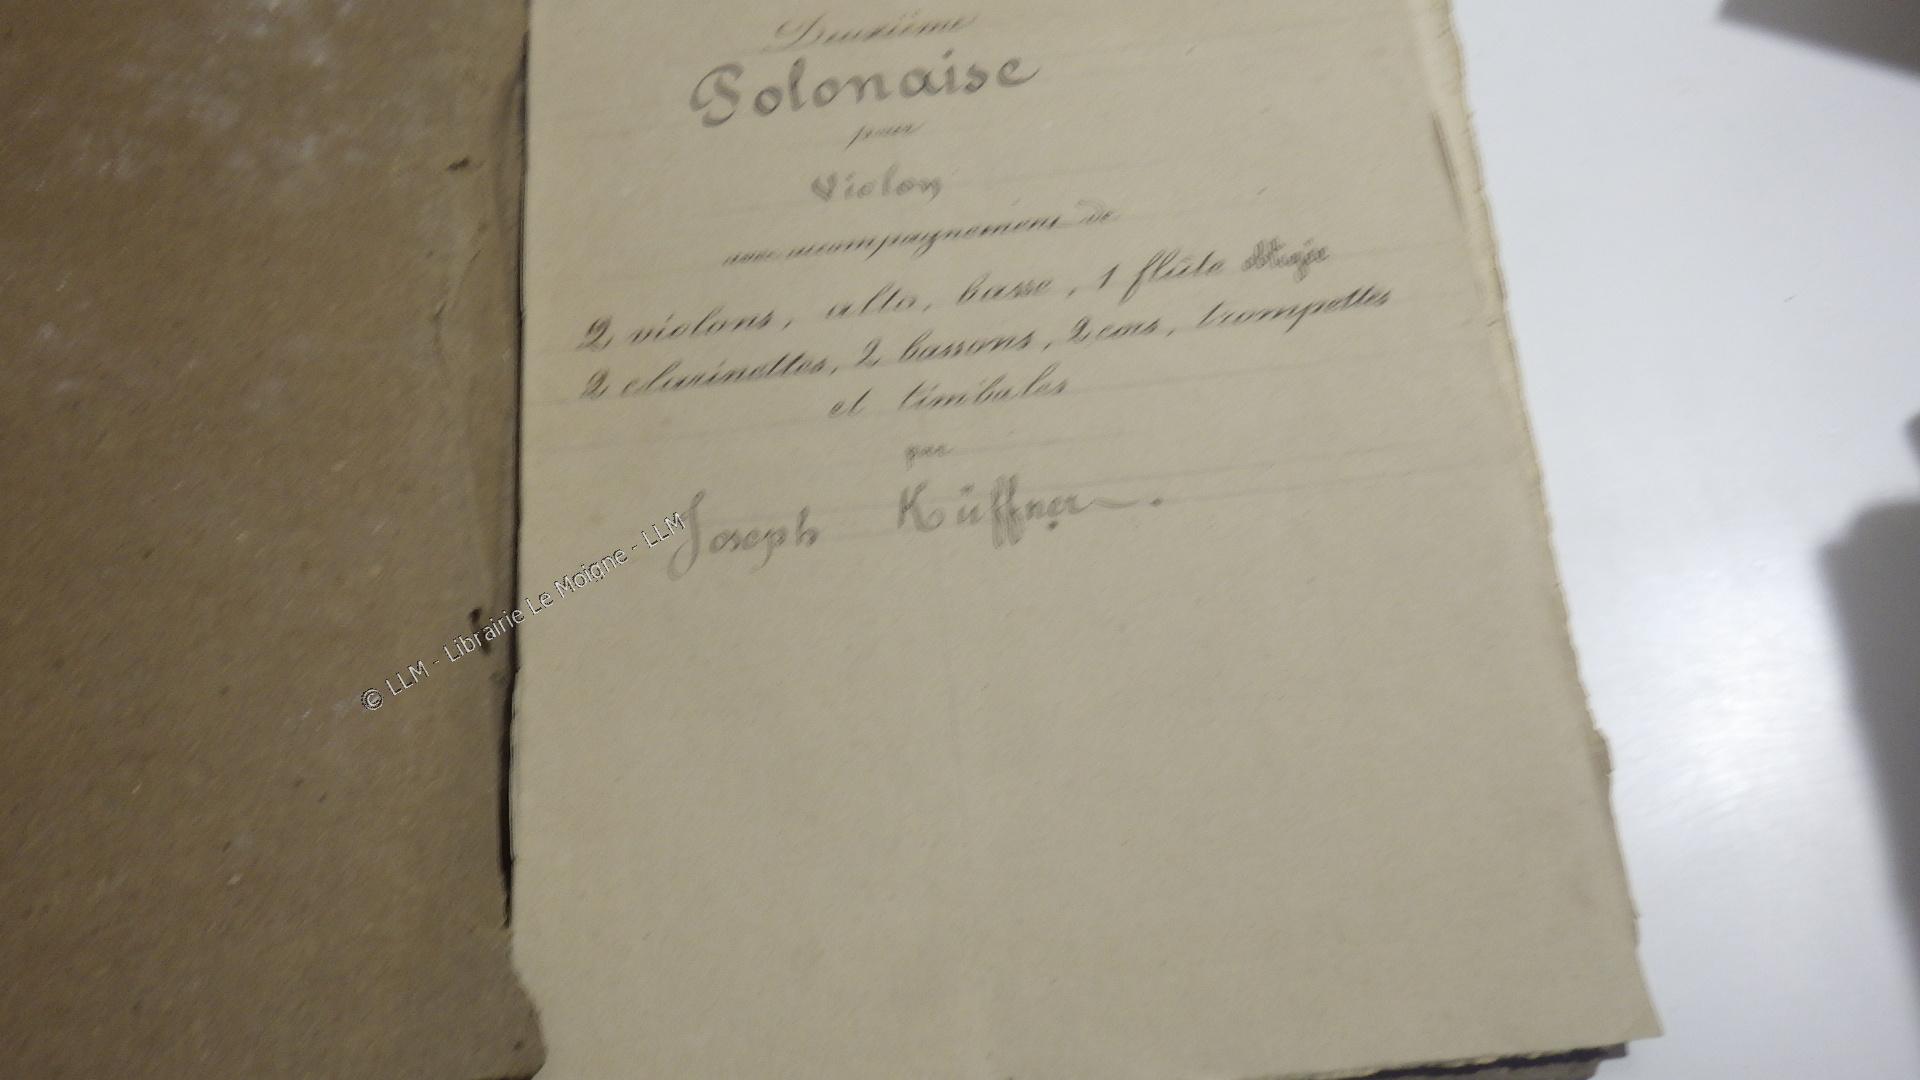 Deuxième
Polonaise
pour
Violon
avec accompagnement de
2 violons, alto, basse, 1 flûte obligée
2 clarinettes, 2 bassons, 2 cors, trompettes
et timbales
par
Joseph Küffner.
© LLM - Librairie Le Moigne - LLM